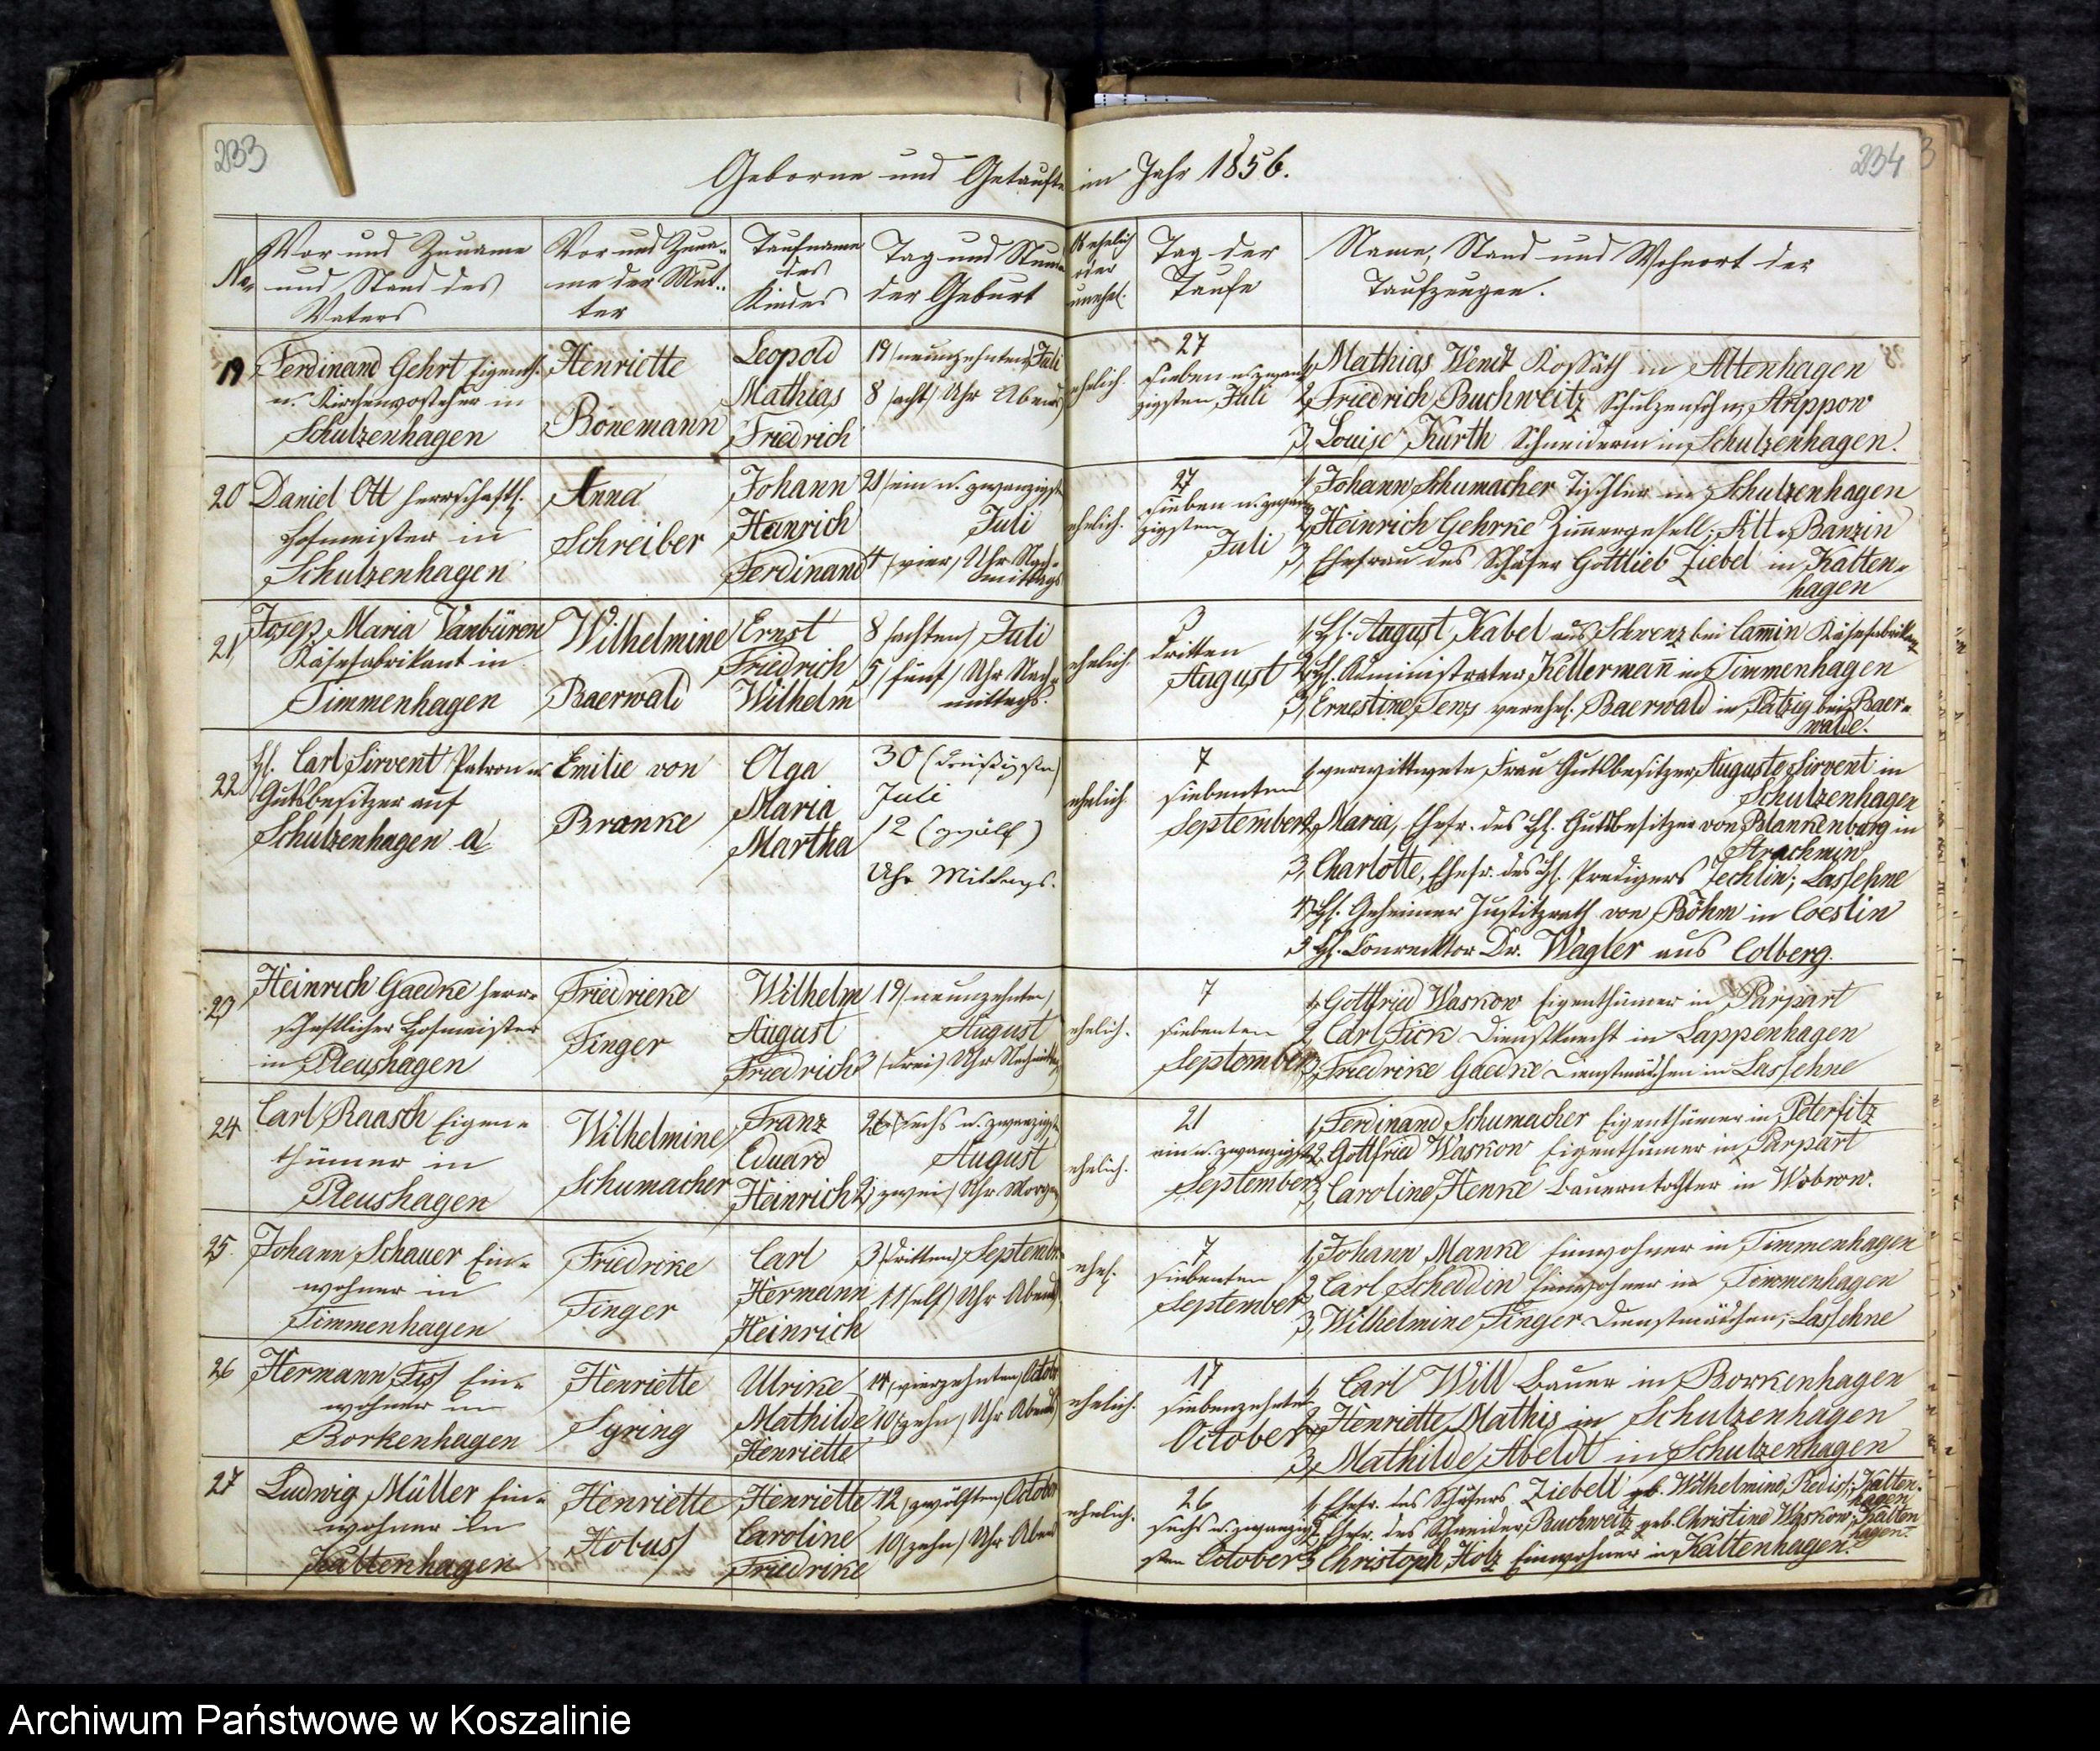 233
234
3
Geborne und Getaufte im Jahr 1856.
No.
Vor und Zuname
und Stand des
Vaters
Vor und Zuna-
me der Mut-
ter
Taufname
des
Kindes
Tag und Stunde
der Geburt
Ob ehelich
oder
unehel.
Tag der
Taufe
Name, Stand und Wohnort der
Taufzeugen.
19
Ferdinand Gehrt Eigenth.
u. Kirchenvorsteher in
Schulzenhagen
Henriette
Bonemann
Leopold
Mathias
Friedrich
19 (neunzehnten) Juli
8 (acht) Uhr Abends
ehelich.
27
sieben u. zwan
zigsten Juli
1, Mathias Wendt Kossäth in Altenhagen
2, Friedrich Buchweitz Schulzensohn, Strippow
3, Louise Kurth Schneiderin in Schulzenhagen.
20
Daniel Ott herrschaftl.
Hofmeister in
Schulzenhagen
Anna
Schreiber
Johann
Heinrich
Ferdinand
21 (ein u. zwanzigst
Juli
4 (vier) Uhr Nach-
mittags
ehelich.
27
sieben u. zwan
zigsten
Juli
1, Johann Schumacher Tischler in Schulzenhagen
2, Heinrich Gehrke Zimmergesell; Alt-Banzin
3, Ehefrau des Schäfer Gottlieb Ziebel in Katten-
hagen
21
Josep Maria Vanbüren
Käsefabrikant in
Timmenhagen
Wilhelmine
Baerwald
Ernst
Friedrich
Wilhelm
8 (achten) Juli
5 (fünf) Uhr Nach-
mittags.
ehelich.
3
dritten
August
1, H. August Kabel aus Schwenz bei Cammin Käsefabrikant
2, H. Administrator Kellermañ in Timmenhagen
3, Ernestine Fenz verehel. Baerwald in Patzig bei Baer-
walde.
22
H. Carl Sirvent Patron u.
Gutsbesitzer auf
Schulzenhagen a.
Emilie von
Branke
Olga
Maria
Martha
30 (dreißigsten)
Juli
12 (zwölf)
Uhr Mittags.
ehelich.
7
siebenten
September
1, verwittwete Frau Gutsbesitzer Auguste Sirvent in
Schulzenhagen
2, Maria, Ehefr. des H. Gutsbesitzer von Blankenburg in
Strachmin
3, Charlotte, Ehefr. des H. Predigers Zechlin; Lassehne
4, H. Geheimer Justitzrath von Röhm in Coeslin
5 H. Conrecktor Dr. Wagler aus Colberg.
23
Heinrich Gaedke herr-
schaftlicher Hofmeister
in Pleushagen
Friedrieke
Finger
Wilhelm
August
Friedrich
19 (neunzehnten)
August
3 (drei) Uhr Nachmittag
ehelich.
7
siebenten
September
1, Gottfried Waskow Eigenthümer in Parpart
2, Carl Fick Dienstknecht in Lappenhagen
3, Friedrike Gaedke Dienstmädchen in Lassehne
24
Carl Raasch Eigen-
thümer in
Pleushagen
Wilhelmine
Schumacher
Franz
Eduard
Heinrich
26 (sechs u. zwanzigst
August
2 (zwei) Uhr Morgen
ehelich.
21
ein u. zwanzigst
September
1, Ferdinand Schumacher Eigenthümer in Peterfitz
2, Gottfried Waskow Eigenthümer in Parpart
3, Caroline Henke Bauerntochter in Wobrow.
25.
Johann Schauer Ein-
wohner in
Timmenhagen
Friedrike
Finger
Carl
Hermann
Heinrich
3 (dritten) Septembr.
11 (elf) Uhr Abends
ehel.
7
siebenten
September
1, Johann Manke Einwohner in Timmenhagen
2, Carl Scheddin Einwohner in Timmenhagen
3, Wilhelmine Finger Dienstmädchen; Lassehne
26
Hermann Ein-
wohner in
Borkenhagen
Henriette
Syring
Ulrike
Mathilde
Henriette
14 (vierzehnten) Octobr
10 (zehn) Uhr Abends
ehelich.
17
siebenzehnten
October
1, Carl Will Bauer in Borkenhagen
2, Henriette Mathis in Schulzenhagen
3, Mathilde Abeldt in Schulzenhagen
27
Ludwig Müller Ein-
wohner in
Kattenhagen
Henriette
Hobuss
Henriette
Caroline
Friedrike
12 (zwölften) October
10 (zehn) Uhr Abend
ehelich.
26
sechs u. zwanzig
sten October
1, Ehefr. des Schäfers Ziebell geb. Wilhelmine Redis; Katten-
hagen
2, Ehefr. des Schneider Buchweitz geb. Christine Waskow; Katten
hagen.
3, Christoph Holz Einwohner in Kattenhagen.
Archiwum Państwowe w Koszalinie